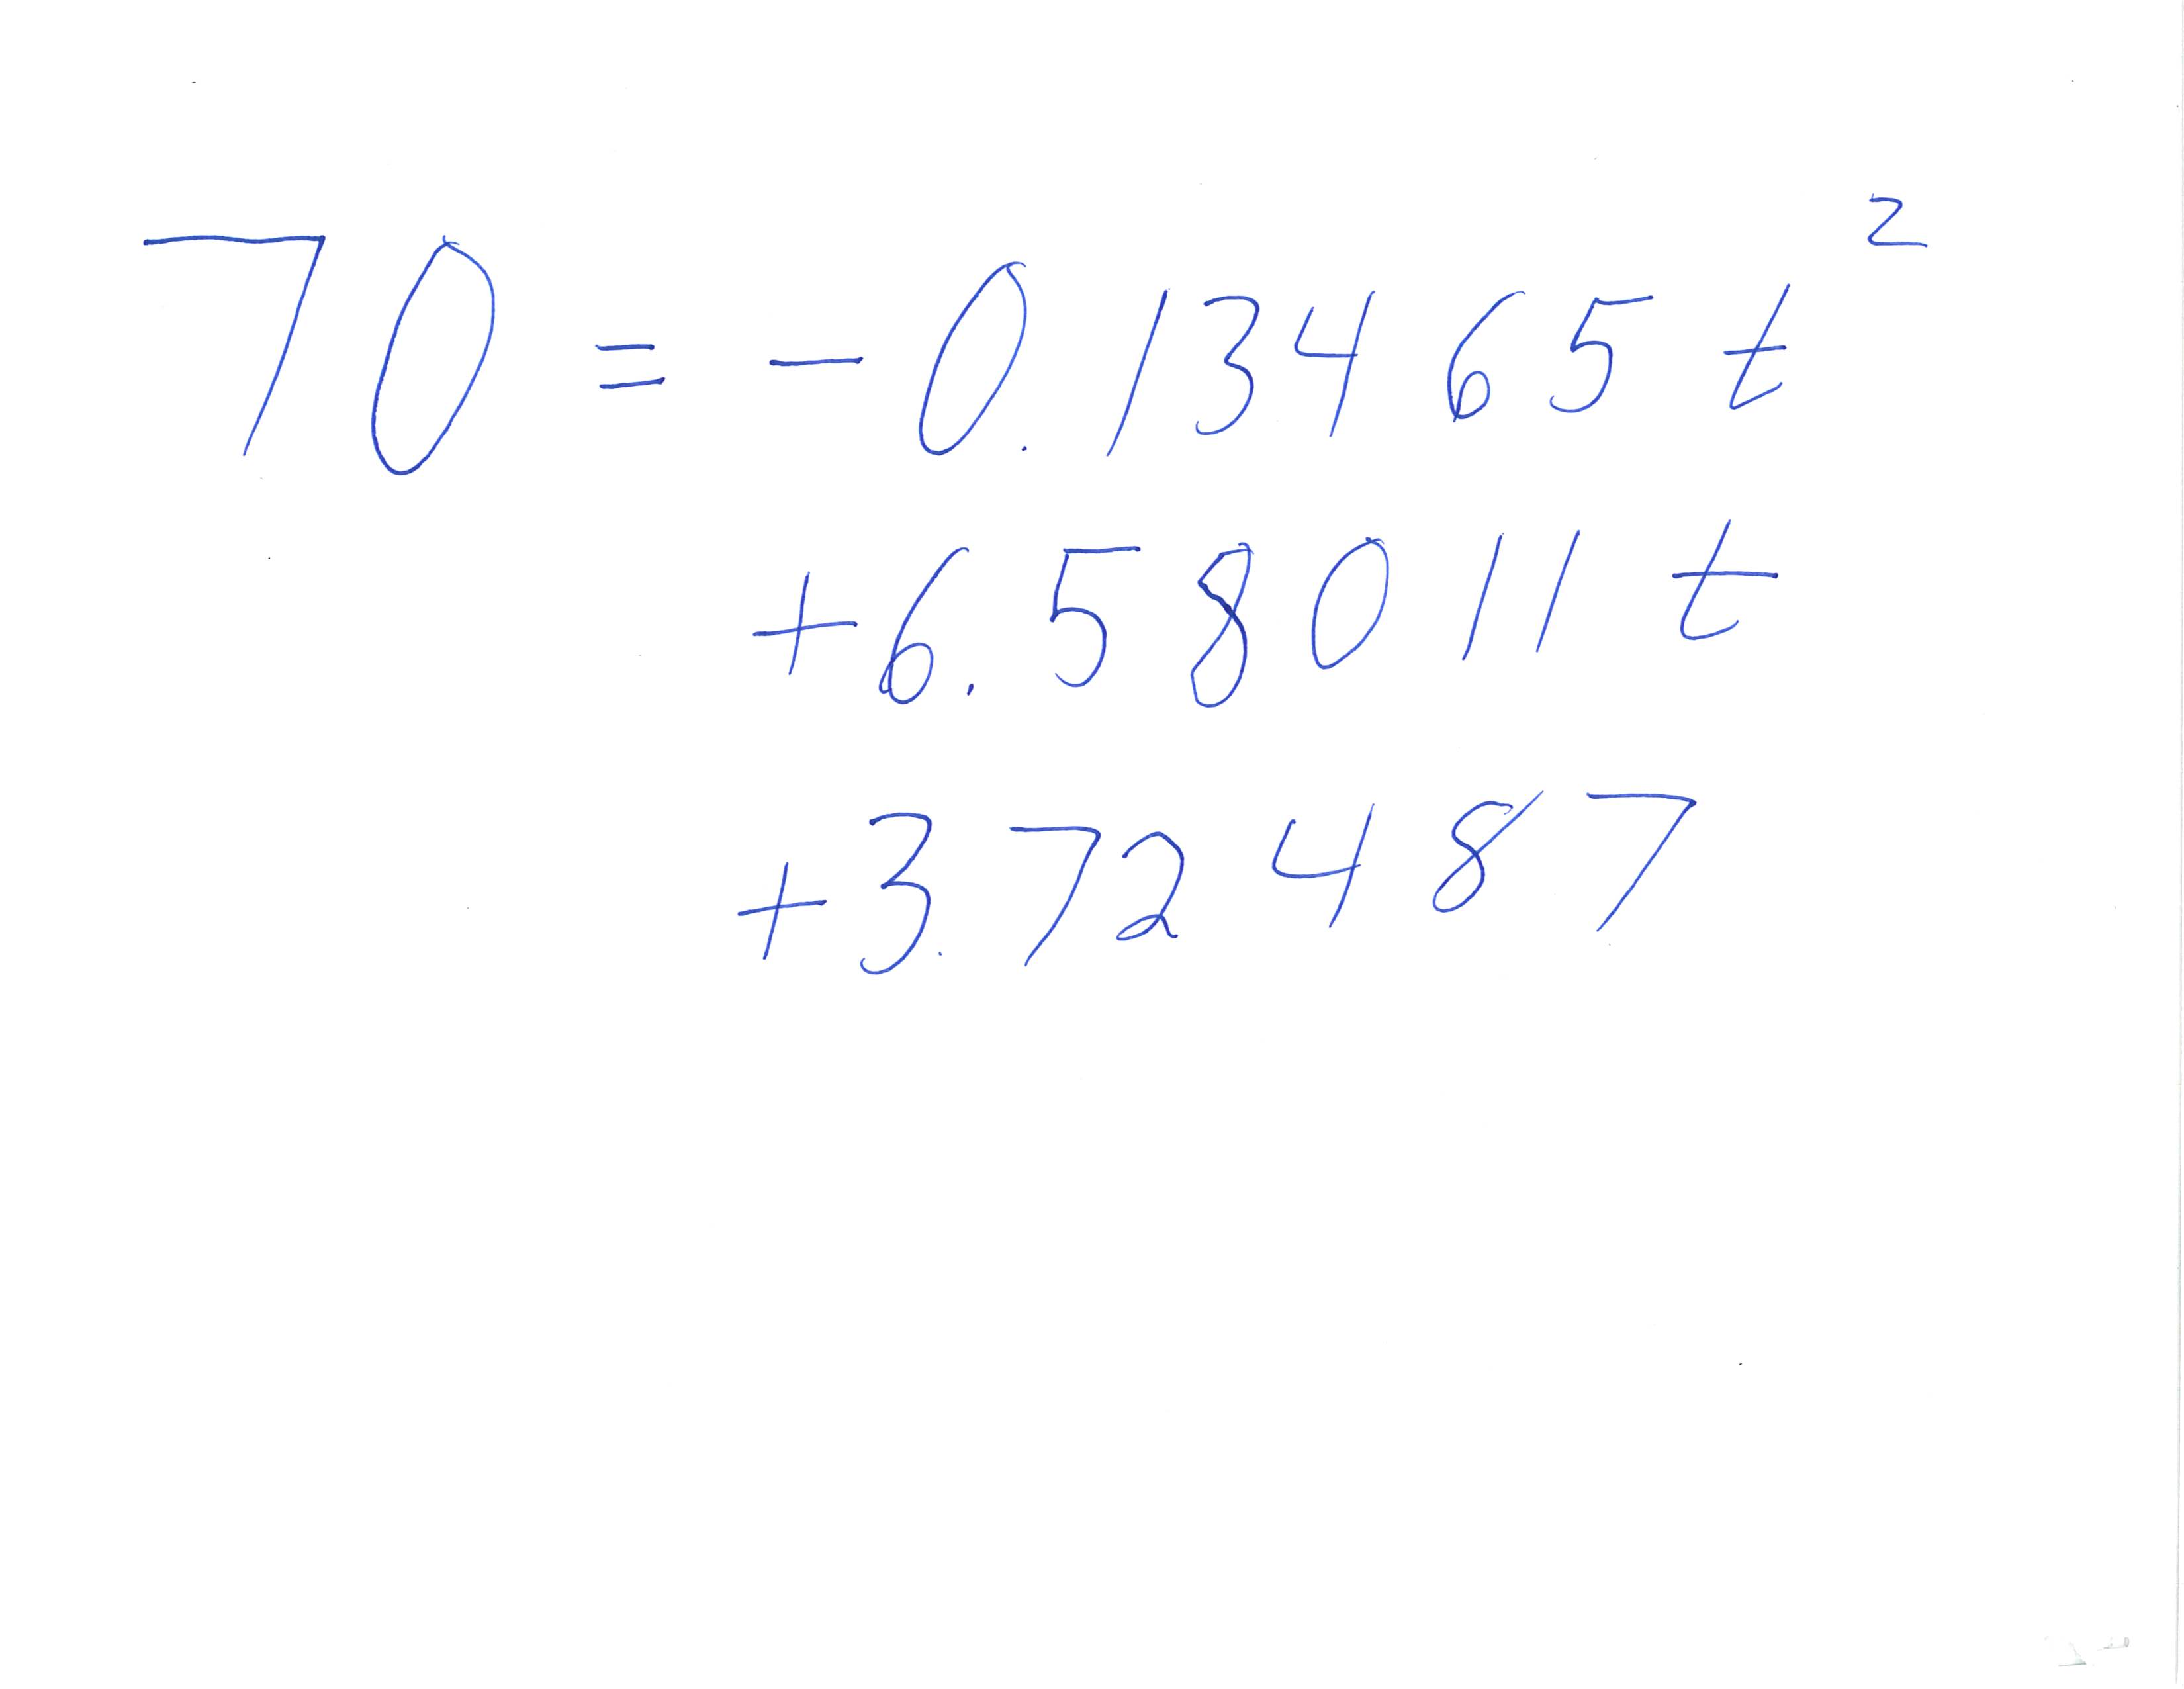 70 = - 0.13465 t²
+6.58011 t
+3.72487